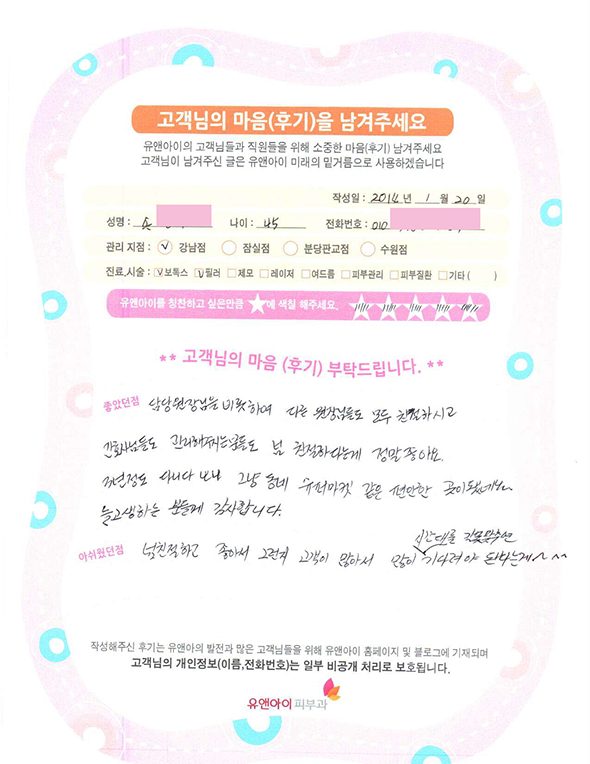 고객님의 마음(후기)을 남겨주세요
유앤아이의 고객님들과 직원들을 위해 소중한 마음(후기) 남겨주세요
고객님이 남겨주신 글은 유앤아이 미래의 밑거름으로 사용하겠습니다
작성일 : 2014 년 1 월 20 일
성명 : 손 나이 : 45 전화번호 : 010
관리 지점 : ✓ 강남점 잠실점 분당판교점 수원점
진료,시술 : ✓보톡스 ✓필러 제모 레이저 여드름 피부관리 피부질환 기타 ( )
유앤아이를 칭찬하고 싶은만큼 ★에 색칠 해주세요.
** 고객님의 마음 (후기) 부탁드립니다. **
좋았던점 담당원장님을 비롯하여 다른 원장님들도 모두 친절하시고
간호사님들도 관리해주시는분들도 넘 친절하다는게 정말 좋아요.
3년정도 다니다 보니 그냥 동네 슈퍼마켓 같은 편안한 곳이
늘고생하는 분들께 감사합니다.
시간대를 잘못맞추면
아쉬웠던점 넘친절하고 좋아서 그런지 고객이 많아서 많이 기다려야 된다는게~ ^^
작성해주신 후기는 유앤아의 발전과 많은 고객님들을 위해 유앤아이 홈페이지 및 블로그에 기재되며
고객님의 개인정보(이름,전화번호)는 일부 비공개 처리로 보호됩니다.
유앤아이피부과